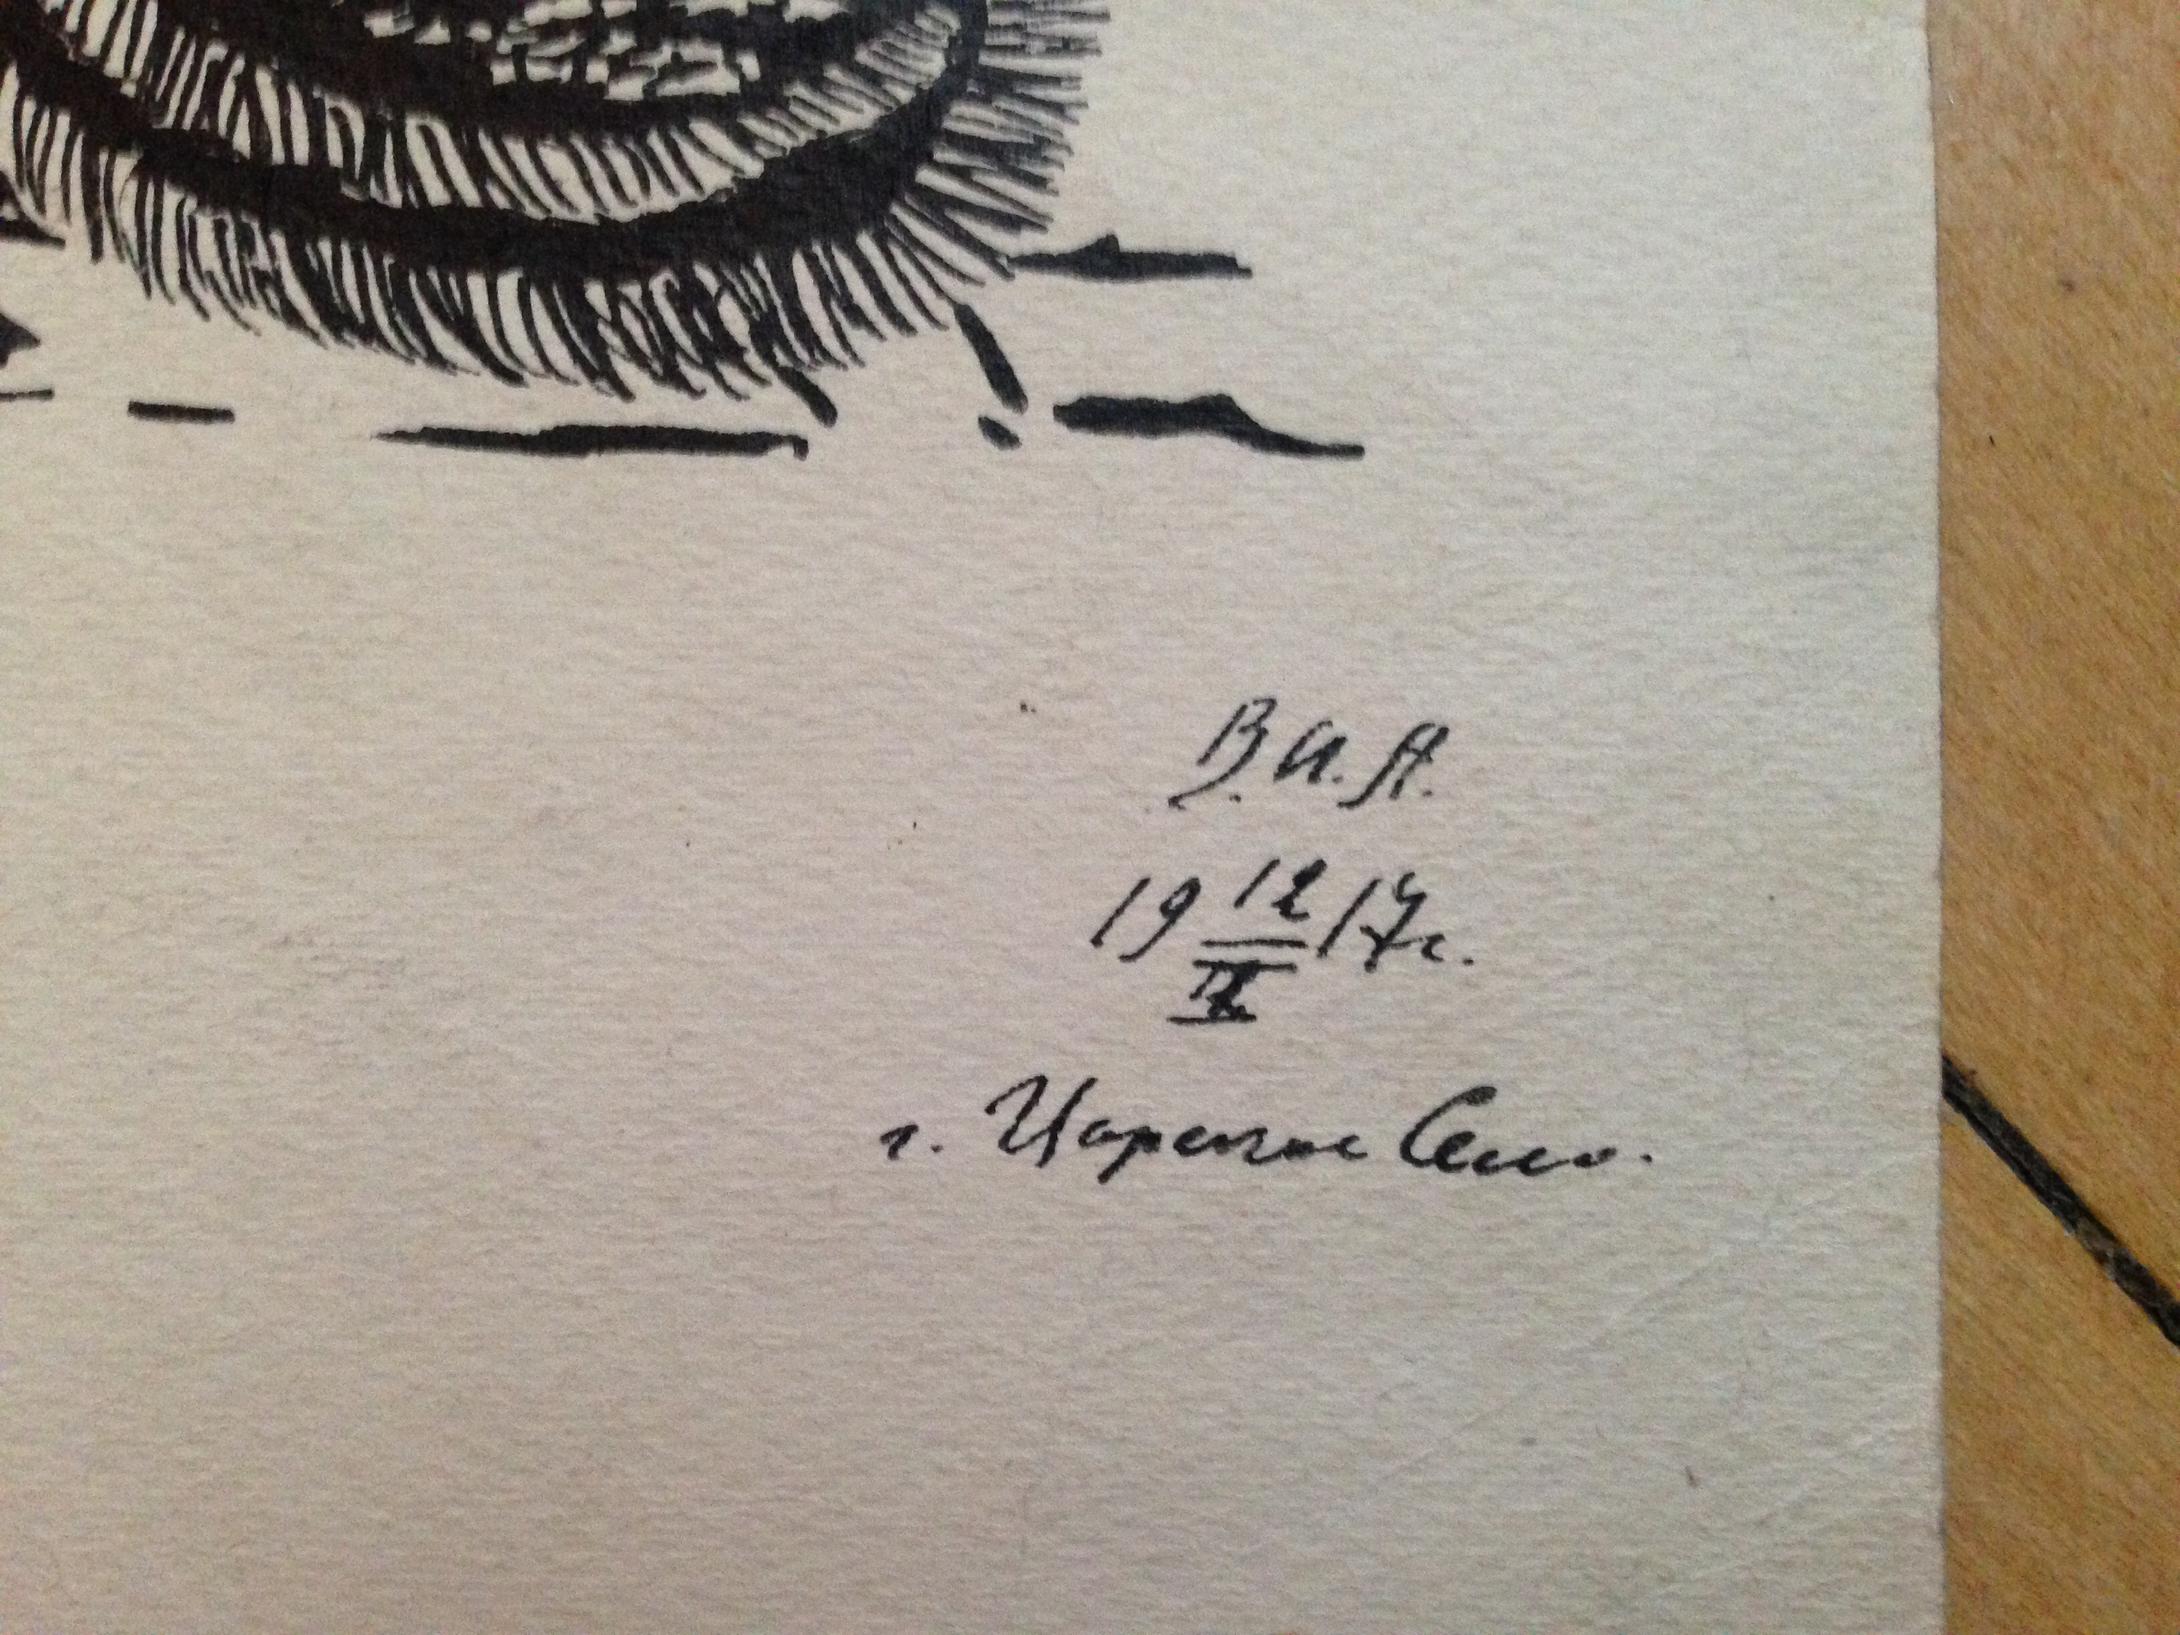 В. И. А.
19 12/IX 17 г.
г. Царское Село.